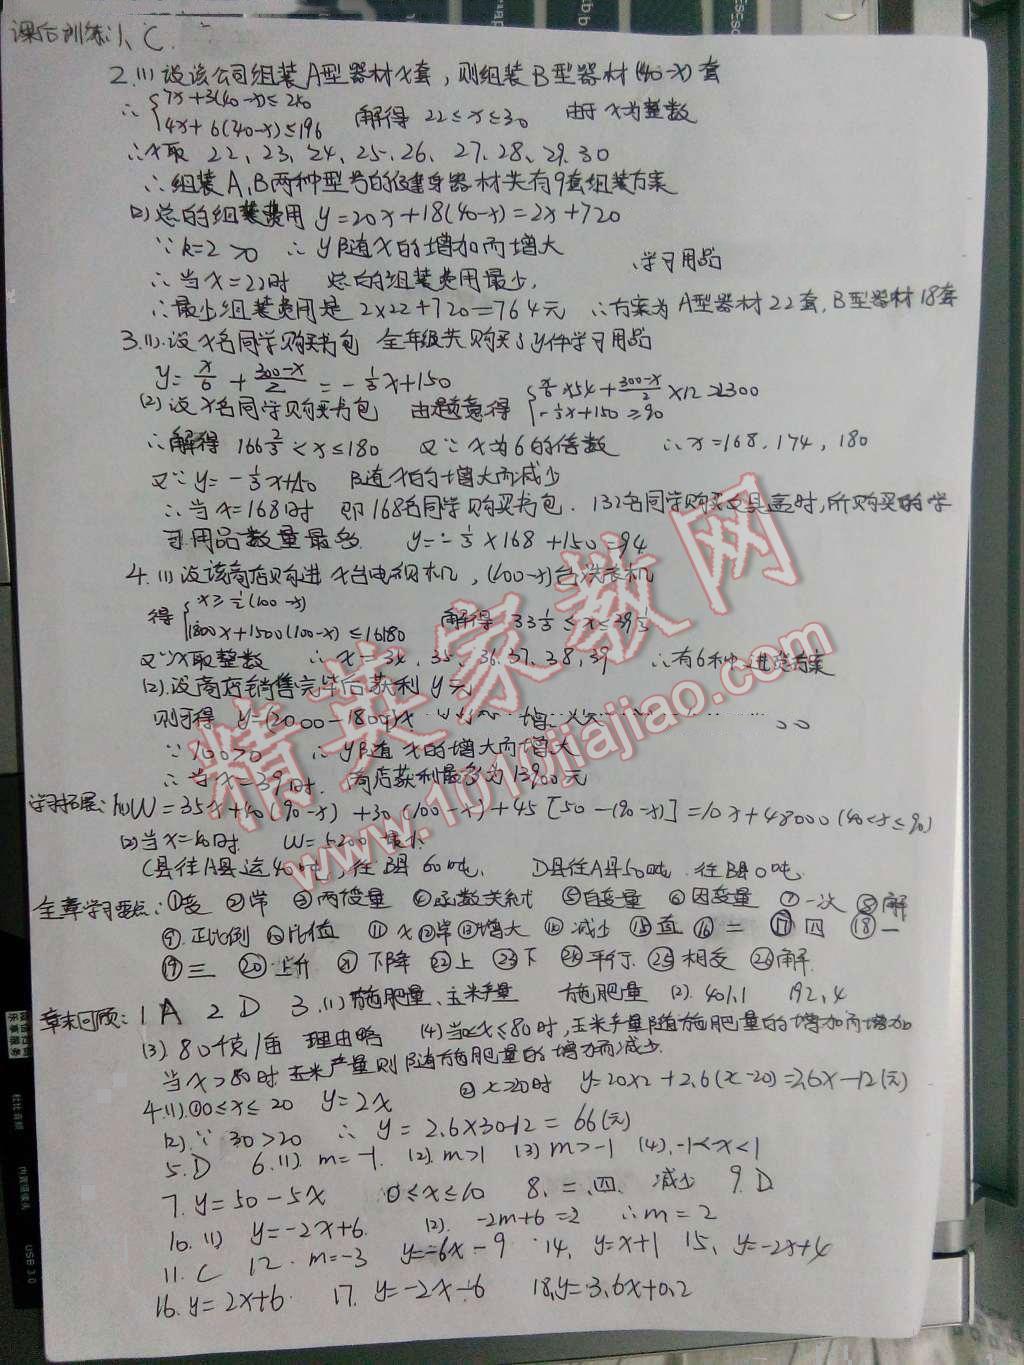 课后训练1、C.
2.(1)设该公司组装A型器材x套，则组装B型器材(40-x)套
∴ {7x+3(40-x)≤240
4x+6(40-x)≤196 解得 22≤x≤30 由于x为整数
∴x取 22、23、24、25、26、27、28、29、30
∴组装A、B两种型号的健身器材共有9套组装方案
(2)总的组装费用 y=20x+18(40-x)=2x+720
∵k=2>0 ∴y随x的增加而增大
、学习用品
∴当x=22时 总的组装费用最少.
∴最少组装费用是 2×22+720=764元 ∴方案为A型器材22套，B型器材18套
3.(1).设x名同学购买书包 全年级共购买了y件学习用品
y=x/6+(300-x)/2=-1/3x+150
(2)设x名同学购买书包 由题意得 {x/6×54+(300-x)/2×12≥2300
-1/3x+150≥90
∴解得 166 2/3<x≤180 又∵x为6的倍数 ∴x=168、174、180
又∵y=-1/3x+150 随x的增大而减少
∴当x=168时 即168名同学购买书包. 132名同学购买文具盒时，所购买的学
习用品数量最多. y=-1/3×168+150=94
4.(1)设该商店购进x台电视机，(100-x)台洗衣机
得 {x≥1/2(100-x)
1800x+1500(100-x)≤16180 解得 33 1/3≤x≤39 1/3
又∵x取整数 ∴x=34、35、36、37、38、39 ∴有6种进货方案
(2).设商店销售完毕后获利y元
则可得 y=(2000-1800)x
∵100>0 ∴y随x的增大而增大
∴当x=39时. 商店获利最多为13900元
学习拓展：(1)W=35x+40(90-x)+30(100-x)+45[50-(90-x)]=10x+48000(40≤x≤90)
(2)当x=40时 W=5200
C县往A县运40吨，往B县60吨. D县往A县50吨 往B县0吨.
全章学习要点：①变 ②常 ③两个变量 ④函数关系式 ⑤自变量 ⑥因变量 ⑦一次 ⑧解
⑨正比例 ⑩比值 ⑪x ⑫常 ⑬增大 ⑭减少 ⑮直 ⑯二 ⑰四 ⑱一
⑲三 ⑳上升 ㉑下降 ㉒上 ㉓下 ㉔平行 ㉕相交 ㉖解
章末回顾：1 A 2 D 3.(1)施肥量、玉米产量 施肥量 (2).401.1 192.4
(3).80千克/亩 理由略 (4)当0≤x≤80时，玉米产量随施肥量的增加而增加
当x>80时 玉米产量则随施肥量的增加而减少.
4.(1).①0≤x≤20 y=2x ②x>20时 y=20×2+2.6(x-20)=2.6x-12(元)
(2).∵30>20 ∴y=2.6×30-12=66(元)
5.D 6.(1).m=-1. (2).m>1 (3)m>-1 (4).-1<x<1
7.y=50-5x 0≤x≤10 8.二、四 减少 9.D
10.(1) y=-2x+6. (2). -2m+6=2 ∴m=2
11.C 12.m=-3 y=-6x-9 14、y=x+1 15、y=-2x+4
16.y=2x+6 17.y=-2x-6 18.y=3.6x+0.2
精英家教网
www.1010jiajiao.com
USB 3.0